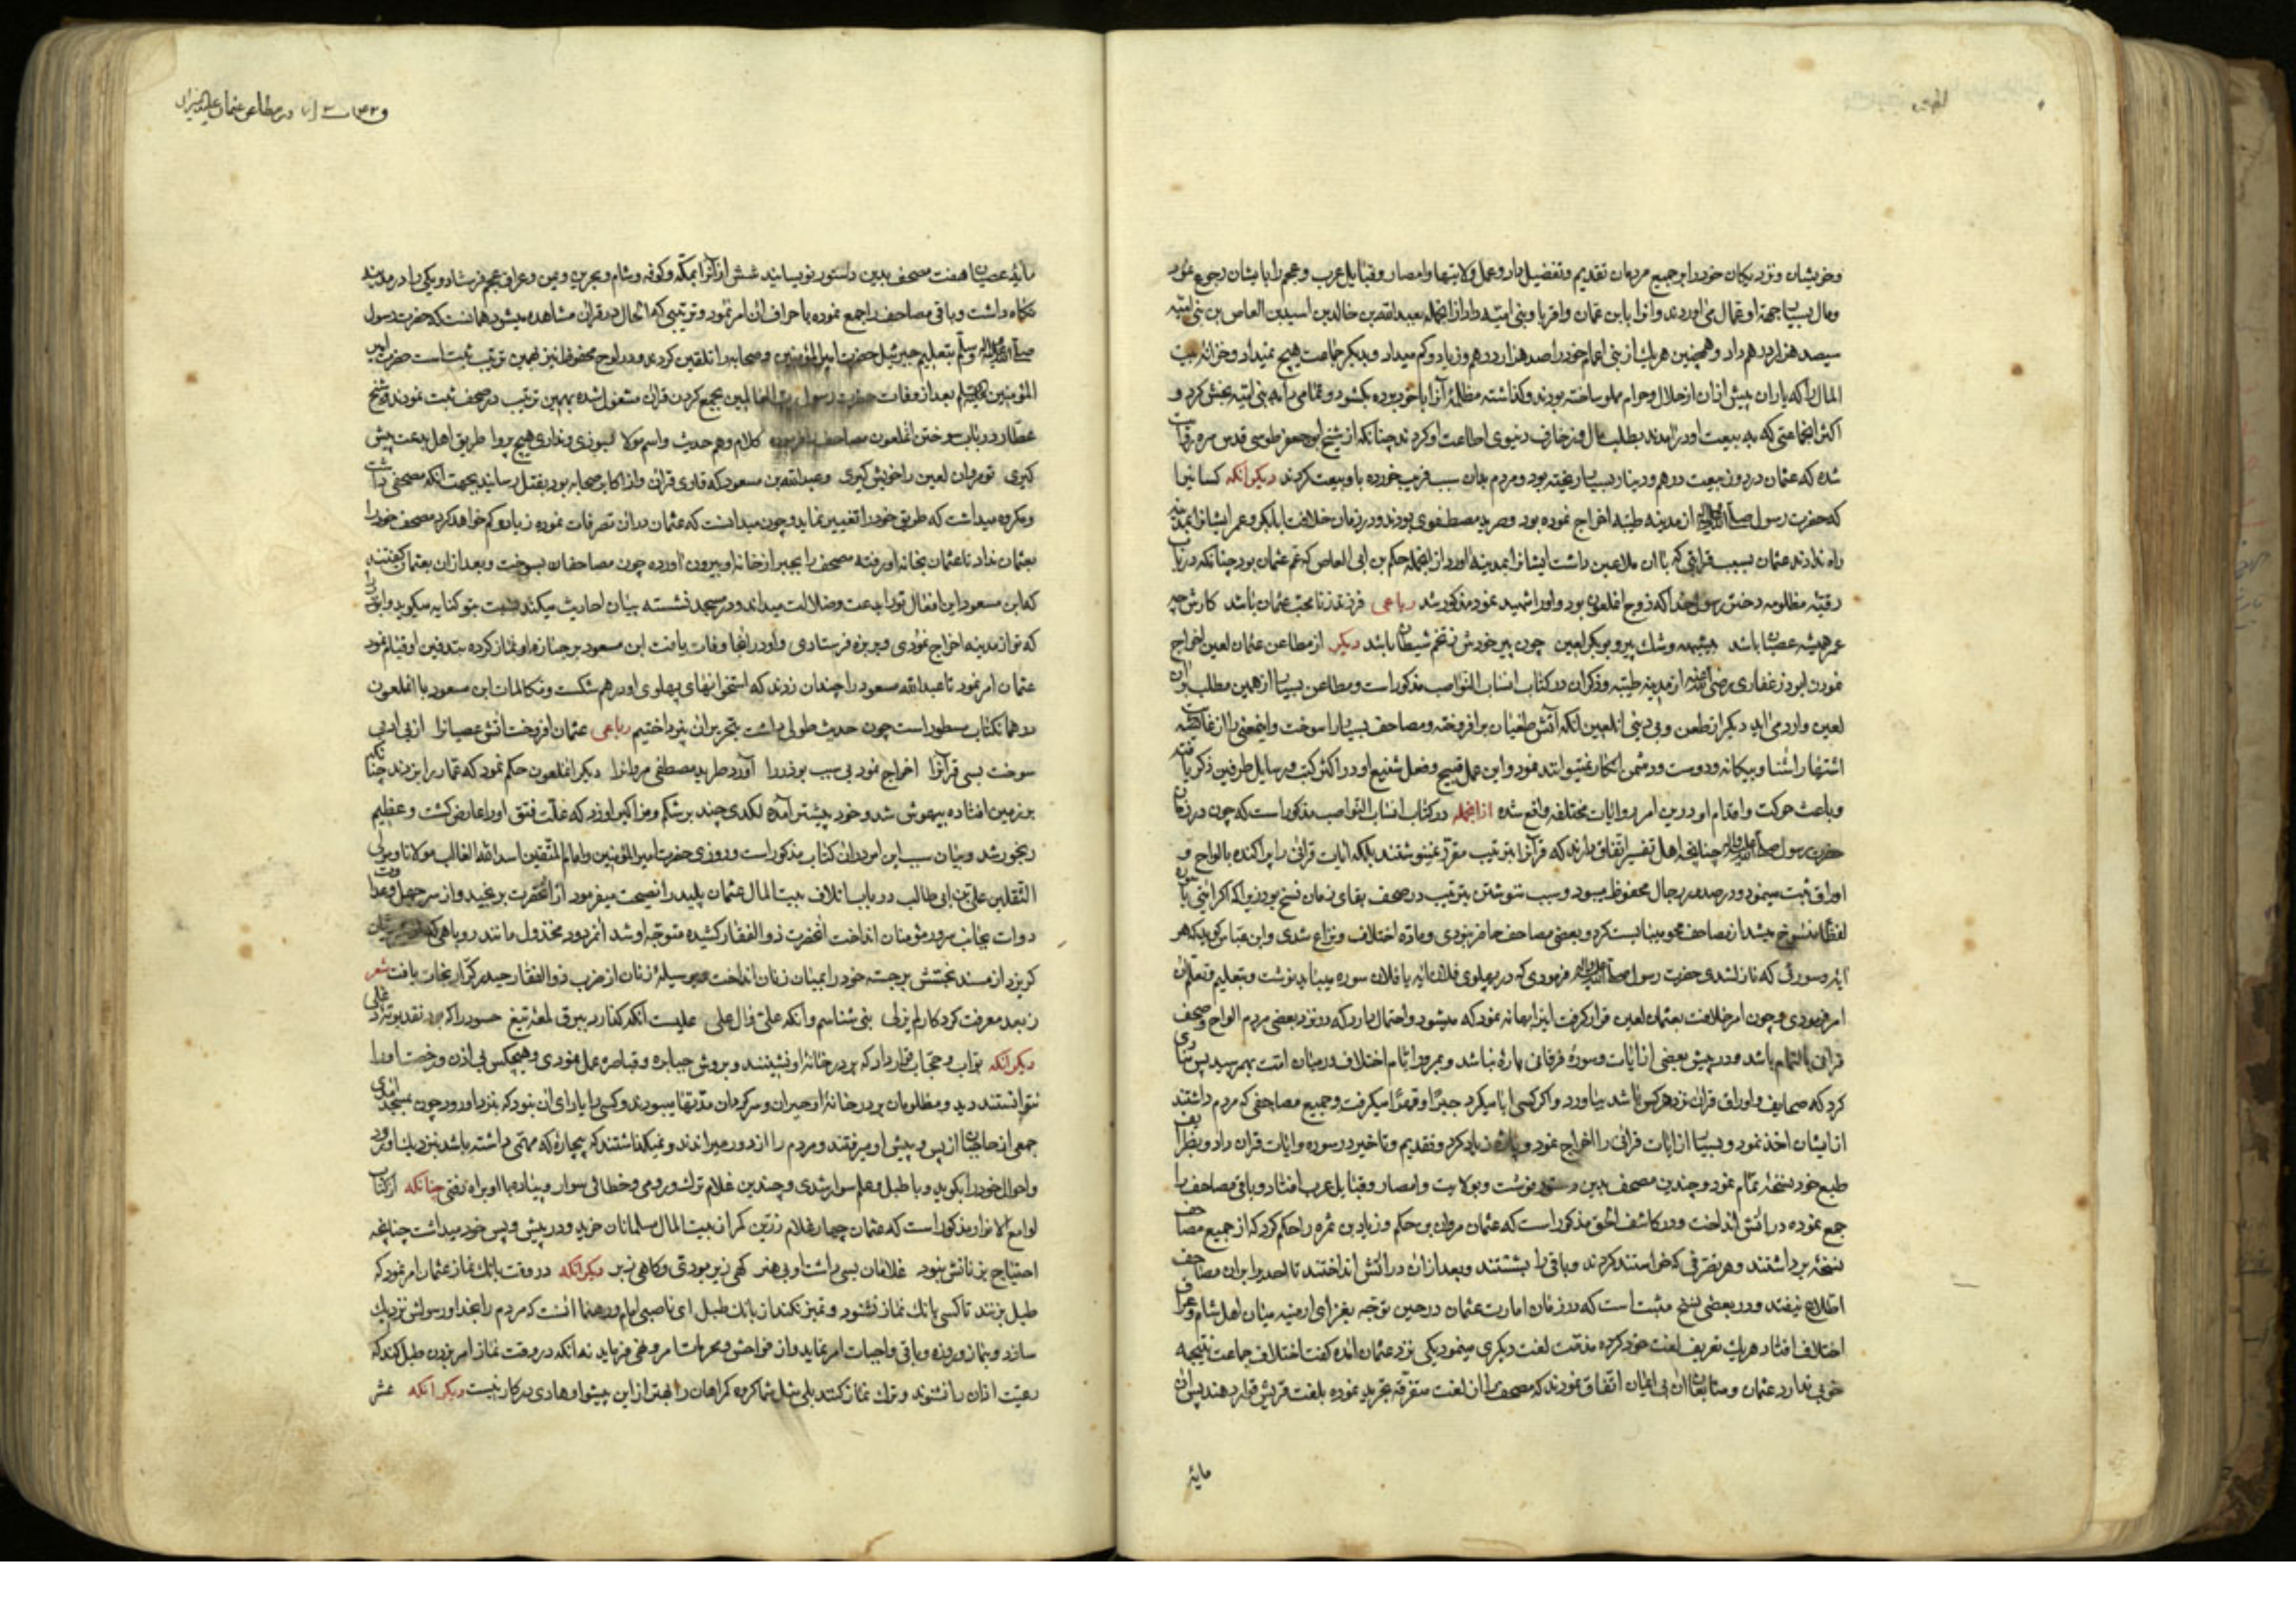 وخویشان ونزدیکان خود را بر جمیع مردمان تقدیم وتفضیل داد وعمل ولایتها وامصار وقبایل عرب وعجم را بایشان رجوع نمود
ومال بسیار جهة او عمال می اوردند وانرا بابن عثمان واقربا وبنی امیّه داد از انجمله بعبدالله بن خالد بن اسید بن العاص بن بنی امیّه
سیصد هزار درهم داد وهمچنین هر یک از بنی اعمام خود را صد هزار درهم وزیاد وکم میداد وبدیکر جماعت هیچ نمیداد وخزانهٔ بیت
المال را که یاران پیش ازان از حلال وحرام مملو ساخته بودند وکذاشته مظلمهٔ آنرا با خود برده بکشود وتمامی را به بنی امیّه بخش کرد و
اکثر انجماعتی که به بیعت او درامدند بطلب مال وزخارف دنیوی اطاعت او کردند چنانکه از شیخ ابو جعفر طوسی قدس سره روایت
شده که عثمان در روز بیعت درهم ودینار بسیار ریخته بود ومردم بدان سبب فریب خورده با او بیعت کردند دیکر انکه کسانیرا
که حضرت رسول صلی الله علیه واله از مدینه طیبه اخراج نموده بود وطرید مصطفوی بودند ودر زمان خلافت ابابکر وعمر ایشانرا بمدینه
راه ندادند عثمان بسبب قرابتی که باان ملاعین داشت ایشانرا بمدینه اورد از انجمله حکم بن ابی العاص که عم عثمان بود چنانکه در باب
رقیّه مظلومه دختر رسول خدا که زوج انملعون بود واو را شهید نمود مذکور شد رباعی فرزند زنا محب عثمان باشد کارش چه
عمر همیشه عصیان باشد بیشبهه وشک پیرو بوبکر لعین چون پیر خودش ز تخم شیطان باشد دیکر از مطاعن عثمان لعین اخراج
نمودن ابوذر غفاری رضی الله عنه از مدینه طیبه وذکر ان در کتاب انساب النواصب مذکور است ومطاعن بسیار از همین مطلب بران
لعین وارد می اید دیکر از طعن وبی دینی انلعین انکه آتش طغیان بر افروخته ومصاحف بسیار را سوخت واینمعنی را از غایت
اشتهار اشنا وبیکانه ودوست ودشمن انکار نمیتوانند نمود واین عمل قبیح وفعل شنیع او در اکثر کتب ورسایل طرفین ذکر یافته
وباعث حرکت واقدام او در این امر روایات مختلفه واقع شده از انجمله در کتاب انساب النواصب مذکور است که چون در زمان
حضرت رسول صلی الله علیه واله چنانچه اهل تفسیر اتفاق دارند که قرآنرا بترتیب مقرر نمینوشتند بلکه ایات قرانی را پراکنده بالواح و
اوراق ثبت مینمود ودر صدور رجال محفوظ میبود وسبب ننوشتن بترتیب در صحف بقای زمان نسخ بود زیرا که اکر ایتی یا
لفظا منسوخ میشد از مصاحف محو میبایست کرد وبعضی مصاحف حاضر نبودی وماده اختلاف ونزاع شدی وابن عباس کوید که هر
ایه وسورتی که نازل شدی حضرت رسول صلی الله علیه واله فرمودی که در پهلوی فلان ایه یا فلان سوره میباید نوشت وبتعلیم وتعلم ان
امر فرمودی وچون امر خلافت بعثمان لعین قرار کرفت این را بهانه نمود که میشود واحتمال دارد که در نزد بعضی مردم الواح وصحف
قرانی بالتمام باشد ودر پیش بعضی از ایات وسورهٔ فرقانی پارهٔ نباشد وبمرور ایام اختلاف در میان امت بهم رسید پس منادی
کرد که صحایف واوراق قران نزد هر کس باشد بیاورد واکر کسی ابا میکرد جبرًا وقهرًا میکرفت وجمیع مصاحفی که مردم داشتند
از ایشان اخذ نمود وبسیار از ایات قرانی را اخراج نمود وپاره زیاد کرد وتقدیم وتاخیر در سوره وایات قران داد وبطریق
طبع خود نسخهٔ تمام نمود وچندین مصحف بدین دستور نوشت وبولایت وامصار وقبایل عرب فرستاد وباقی مصاحف را
جمع نموده در اتش انداخت ودر کاشف الحق مذکور است که عثمان مروان بن حکم وزیاد بن ثمره را حکم کرد که از جمیع مصاحف
نسخهٔ برداشتند وهر تصرفی که خواستند کردند وباقی را بشستند وبعد ازان در اتش انداختند تا احدی را بران مصاحف
اطلاع نیفتد ودر بعضی نسخ مثبت است که در زمان امارت عثمان در حین توجه بغزای ارمنیه میان اهل شام وعراق
اختلاف افتاد هر یک تعریف لغت خود کرده مذمت لغت دیکری مینمود یکی نزد عثمان امده کفت اختلاف جماعت نتیجه
خوبی ندارد عثمان ومتابعان ان بی ایمان اتفاق نمودند که مصحف را از لغت متفرقه تجرید نموده بلغت قریش قرار دهند پس ان
مایهٔ
مایهٔ عصیان هفت مصحف بدین دستور نویسانید شش از آنرا بمکه وکوفه وشام وبحرین ویمن وعراق عجم فرستاد ویکی را در مدینه
نکاه داشت وباقی مصاحف را جمع نموده باحراق ان امر نمود وترتیبی که الحال در قران مشاهده میشود همانست که حضرت رسول
صلی الله علیه واله وسلم بتعلیم جبرئیل حضرت امیر المؤمنین وصحابه را تلقین کردند ودر لوح محفوظ نیز بهمین ترتیب ثبت است حضرت امیر
المؤمنین بعد از وفات حضرت رسول رب العالمین بجمع کردن قران مشغول شده بهمین ترتیب در صحف ثبت نمودند وشیخ
عطار در باب سوختن انملعون مصاحف کلام وهم حدیث واسم مولا بسوزی ونداری هیچ پروا طریق اهل بدعت پیش
کیری تو مروان لعین را خویش کیری وعبدالله بن مسعود که قاری قران واز اکابر صحابه بود بقتل رسانید بجهت انکه مصحفی داشت
ومکروه میداشت که طریق خود را تغییر نماید وچون میدانست که عثمان دران تصرفات نموده زیاد وکم خواهد کرد مصحف خود را
بعثمان نداد تا عثمان بخانه او رفته مصحف را بجبر از خانه او بیرون اورده چون مصاحفان بسوخت وبعد ازان بعثمان کفتند
که ابن مسعود این افعال تورا بدعت وضلالت میداند ودر مسجد نشسته بیان احادیث میکند نسبت بتو کنایه میکوید وابوذر
که تو از مدینه اخراج نمودی وبربذه فرستادی واو در انجا وفات یافت ابن مسعود بر جنازه او نماز کرده بتدفین او قیام نمود
عثمان امر نمود تا عبدالله مسعود را چندان زدند که استخوانهای پهلوی او درهم شکست ومکالمات ابن مسعود با انملعون
در همان کتاب مسطور است چون حدیث طولی داشت بتحریر ان نپرداختیم رباعی عثمان افروخت اتش عصیانرا از بی ادبی
سوخت بسی قرآنرا اخراج نمود بی سبب بوذر را آورد طرید مصطفی مروانرا دیکر انملعون حکم نمود که عمار را بزدند چنانکه
بر زمین افتاده بیهوش شد وخود پیشتر آمده لکدی چند بر شکم ومذاکیر او زد که علت فتق او را عارض کشت وعظیم
رنجور شد وبیان سبب این امر دران کتاب مذکور است وروزی حضرت امیر المؤمنین وامام المتقین اسد الله الغالب مولانا ومولی
الثقلین علی بن ابی طالب در باب اتلاف بیت المال عثمان پلید را نصیحت میفرمود از انحضرت برنجید واز سر جهل وعداوت
دوات بجانب سرور مؤمنان انداخت انحضرت ذوالفقار کشیده متوجه او شد انمردود مخذول مانند روباهی که از شیر ژیان
کریزد از مسند تختش برجسته خود را بمیان زنان انداخت وبوسیلهٔ زنان از ضرب ذوالفقار حیدر کرار نجات یافت شعر
دیکر انکه بواب وحجاب قرار داد که بر در خانهٔ او نشینند وبروش جبابره وقیاصره عمل نمودی وهیچکس بی اذن ورخصت او را
نتوانستند دید ومظلومان بر در خانهٔ او حیران وسرکردان مدتها میبودند وکسی را یارای ان نبود که نزد او رود چون بمسجد امدی
جمعی از حاجبان از پس وپیش او میرفتند ومردم را از دور میراندند ونمیکذاشتند که بیچارهٔ که مهمّی داشته باشد بنزدیک او رود
واحوال خود را بکوید وبا طبل وعلم سوار شدی وچندین غلام ترک ورومی وخطائی سوار وپیاده با او براه رفتی چنانکه از کتاب
لوامع الانوار مذکور است که عثمان چهار غلام زرین کمر از بیت المال مسلمانان خرید ودر پیش وپس خود میداشت چنانچه
احتیاج بزنانش نبود غلامان بسی داشت او بی هنر کهی زیر بودی وکاهی زبر دیکر انکه در وقت بانک نماز عثمان امر نمود که
طبل بزنند تا کسی بانک نماز نشنود وتمیز نکند از بانک طبل ای ناصبی امام ورهنما انست که مردم را بخدا ورسولش نزدیک
سازد وبنماز وروزه وباقی واجبات امر نماید واز فواحش ومحرمات امر ونهی فرماید نه انکه در وقت نماز امر بزدن طبل کند که
رعیت اذان را نشنوند وترک نماز کنند بلی مثل شما کروه کمراهان را بهتر از این پیشوا وهادی در کار نیست دیکر انکه عشر